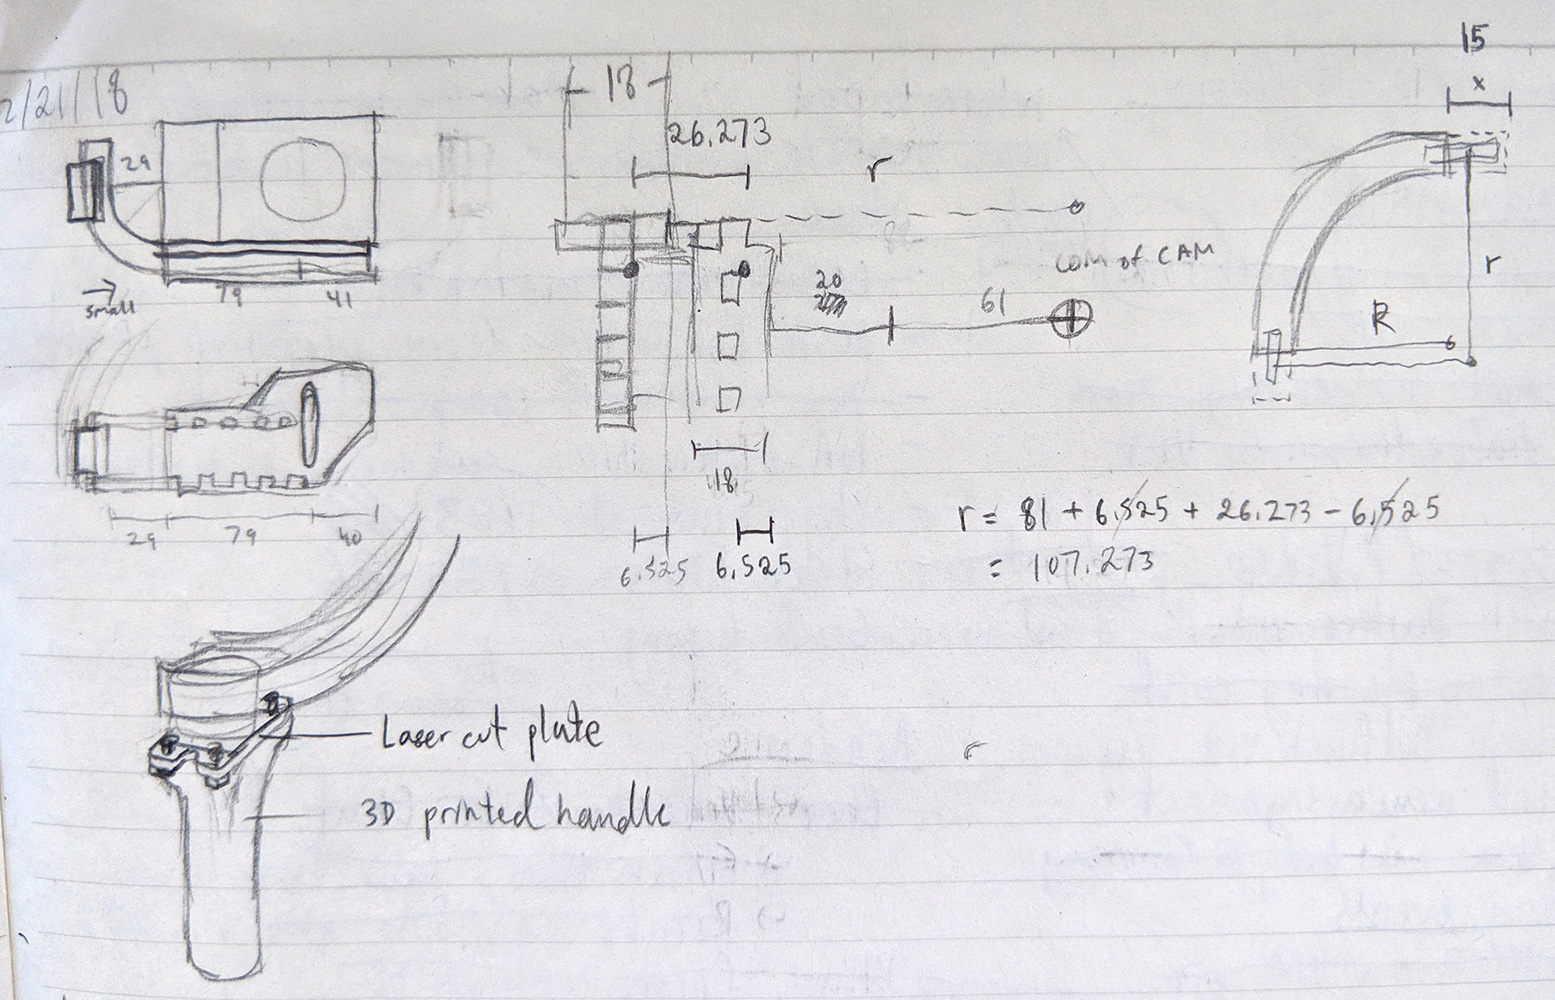 2/21/18
29
79
41
small
29
79
40
18
26.273
r
20
61
COM of CAM
18
6.525
6.525
15
x
r
R
r = 81 + 6.525 + 26.273 - 6.525
= 107.273
Laser cut plate
3D printed handle
r